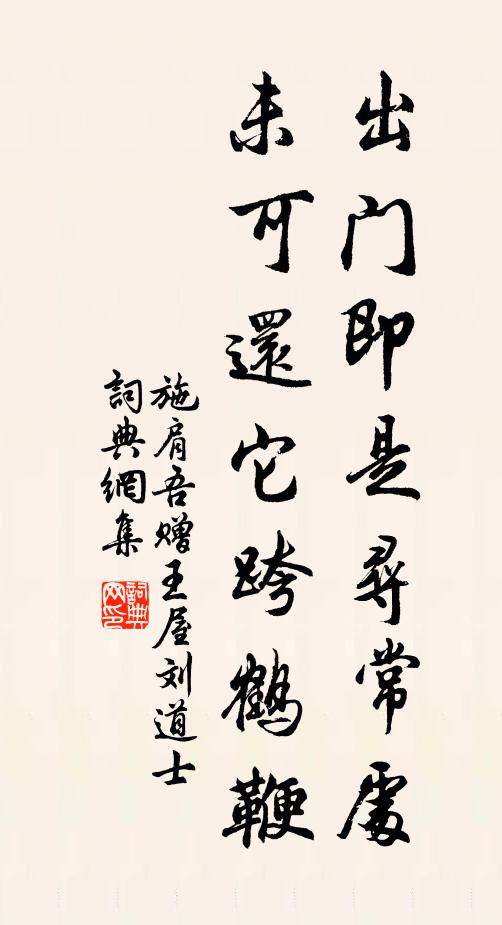 出门即是尋常處
未可還它跨鶴鞭
施肩吾赠王屋刘道士
詞典網集
詞典
网印